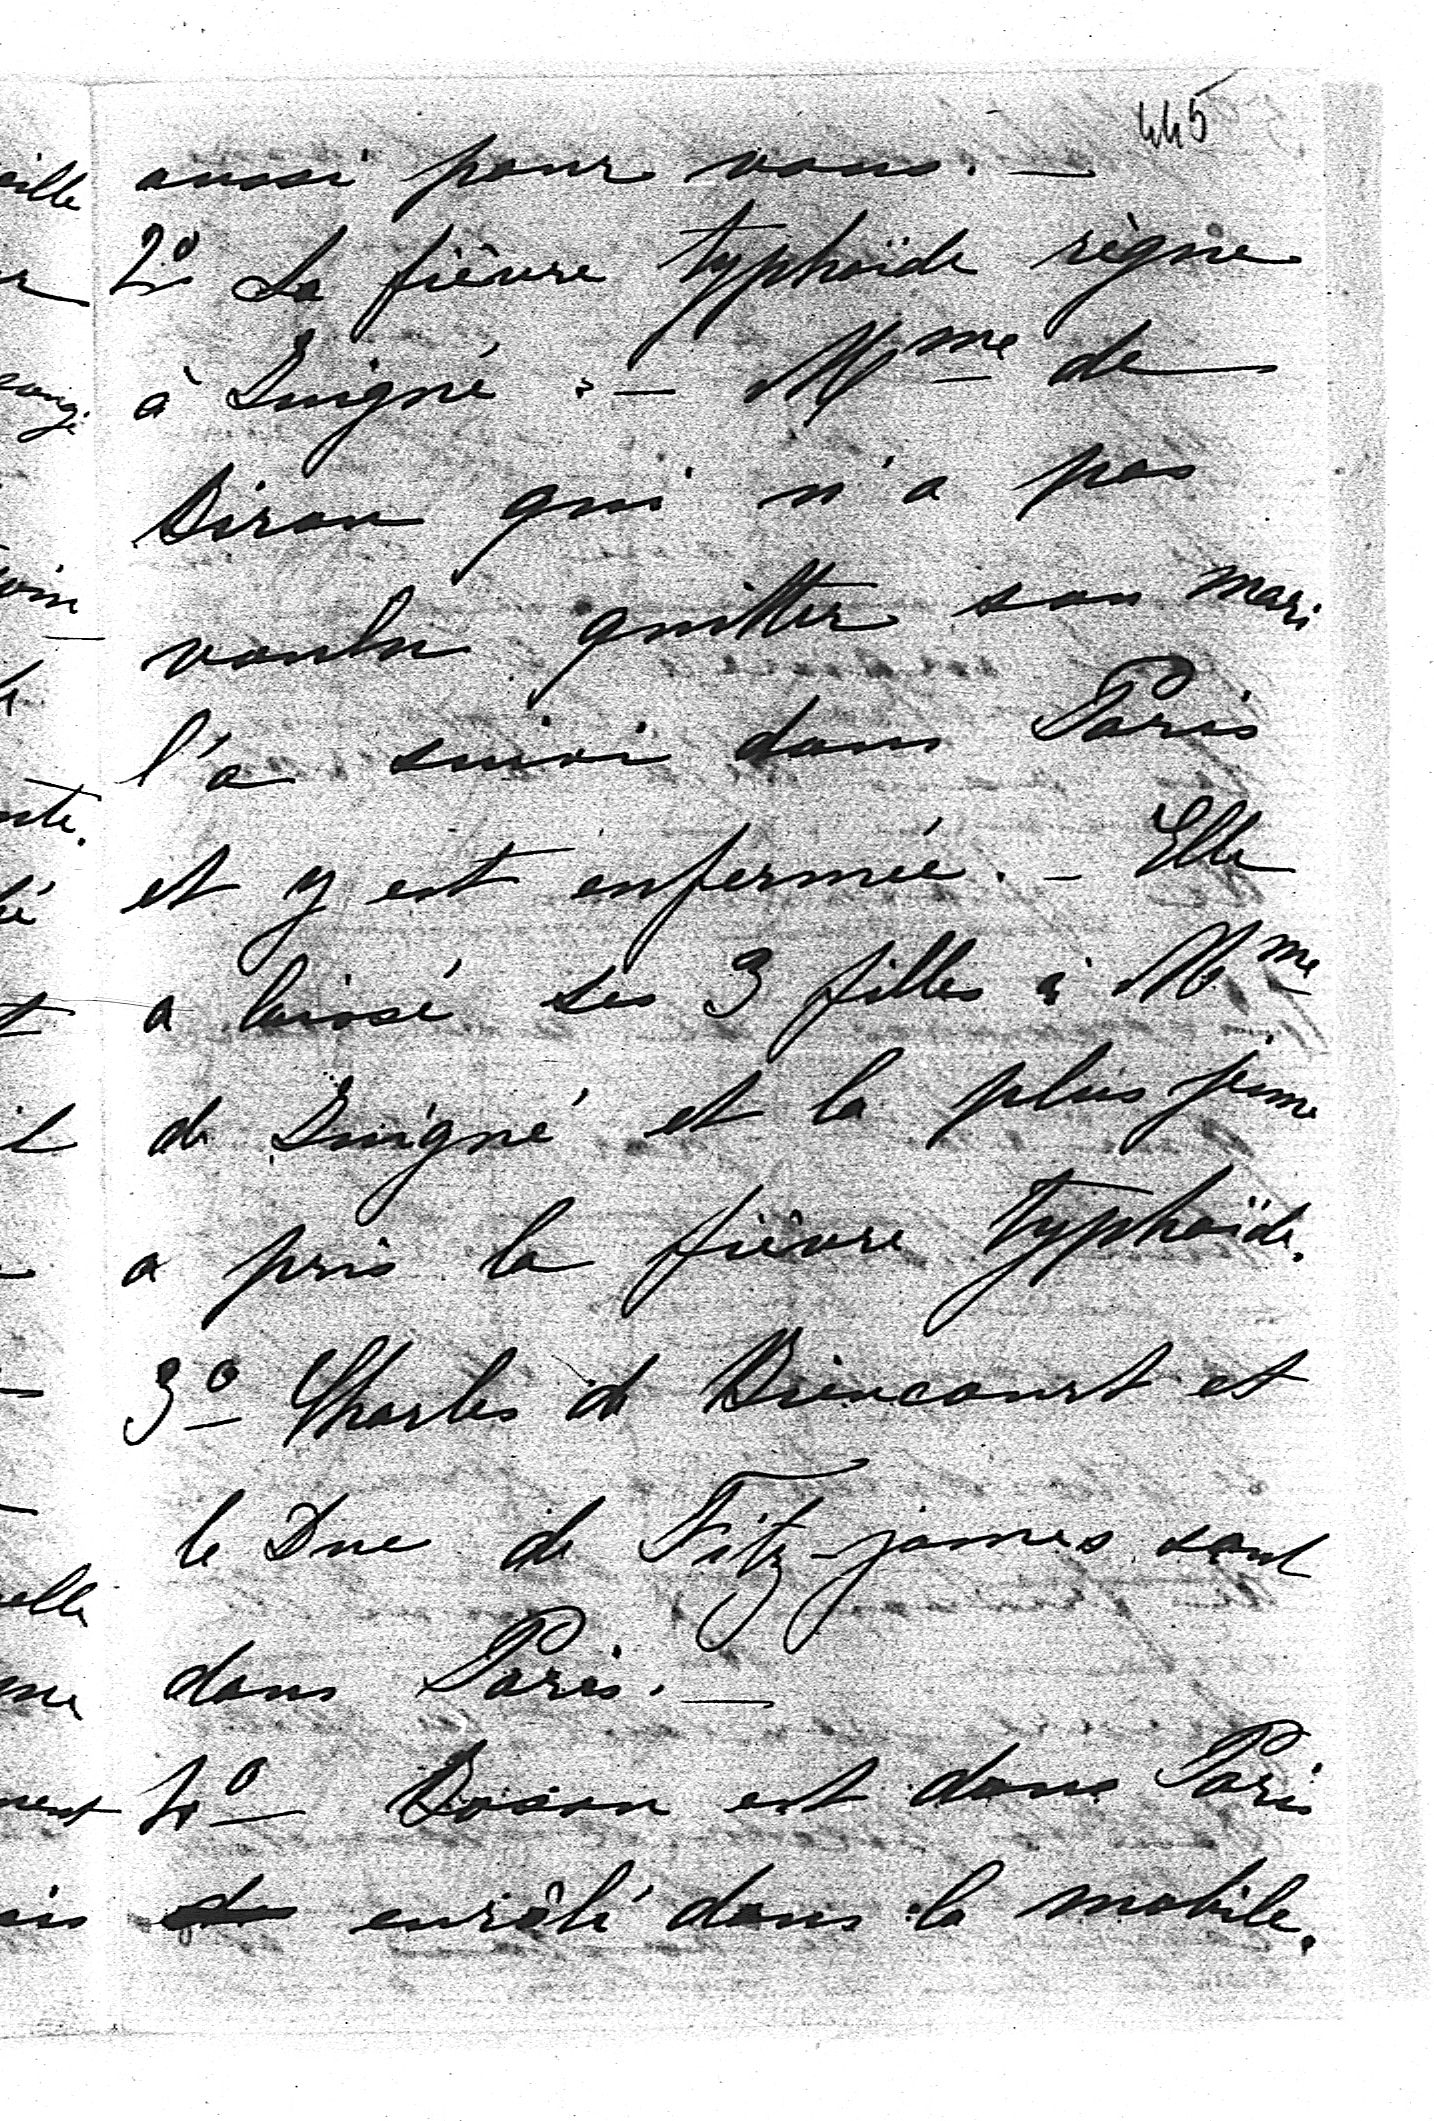 445
aussi pour vous. —
2° La fièvre typhoïde règne
à Juigné. — Mme de
Biron qui n'a pas
voulu quitter son mari
l'a suivi dans Paris
et y est enfermée. — Elle
a laissé ses 3 filles à Mme
de Juigné et la plus jeune
a pris la fièvre typhoïde.
3° Charles de Biencourt et
le Duc de Fitz-james sont
dans Paris. —
4° Boson est dans Paris
enrôlé dans la mobile.